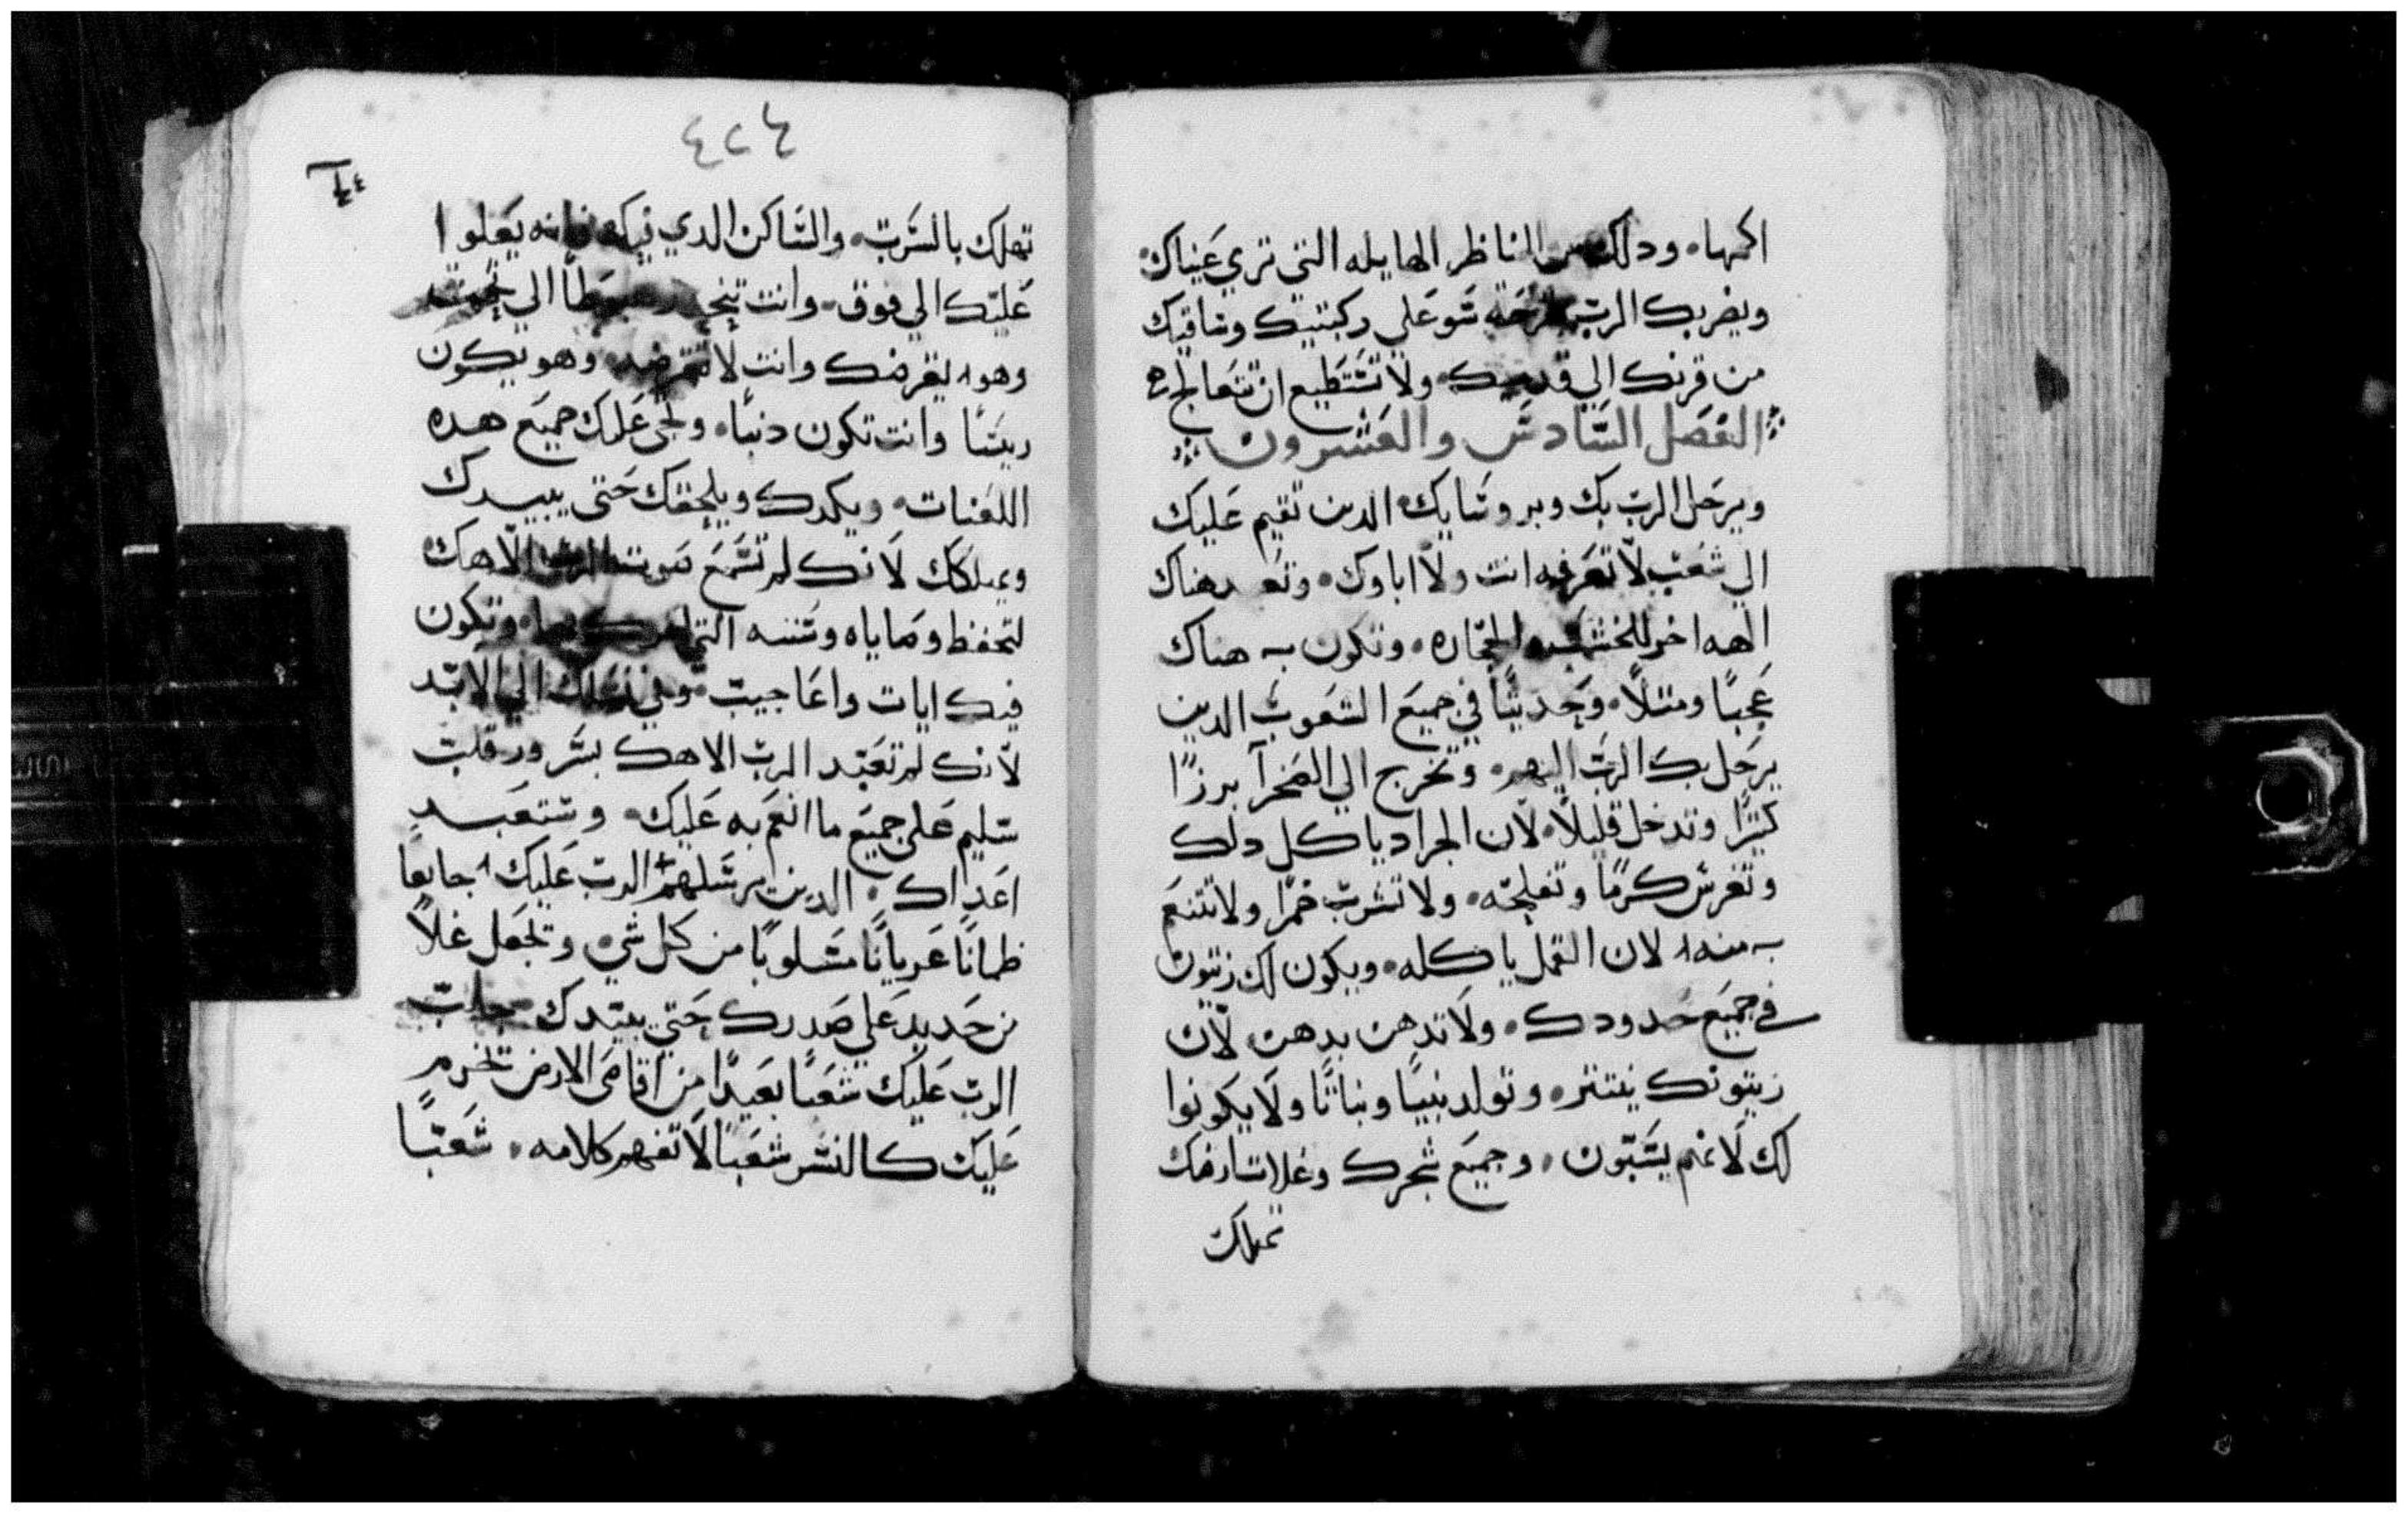 اكمها٠ ودلك من المناظر الهايله التي تري عيناك٠
ويضربك الرب بقرحه سو علي ركبتيك وساقيك
من قرنك الي قدميك٠ ولا تستطيع ان تتعالج
الفصل السادس والعشرون
ويرحل الرب بك وبروسايك الدين تقيم عليك
الي شعب لا تعرفه انت ولا اباوك٠ وتعبد هناك
الهه اخر للخشب والحجاره٠ وتكون به هناك
عجبا ومتلا٠ وحديتا في جميع الشعوب الدين
يرحل بك الرب اليهم٠ وتخرج الي الصحرا بررًا
كتيرًا وتدخل قليلًا٠ لان الجراد ياكل دلك
وتغرس كرمًا وتفلحه٠ ولا تشرب خمرًا ولا تتنعم
به منه٠ لان القمل ياكله٠ ويكون لك زيتون
في جميع حدودك٠ ولا تدهن بدهن لان
زيتونك ينتتر٠ وتولد بنيبًا وبناتًا ولا يكونوا
لك لانهم يسبون٠ وجميع شجرك وغلات ارضك
تهلك
٤٢٤
تهلك بالسرب٠ والساكن الدي فيك فانه يعلوا
عليك الي فوق٠ وانت تنحدر هبوطًا الي تحت
وهو يقرضك وانت لا تقرضه٠ وهو يكون
ريسًا وانت تكون دنبًا٠ وتجي عليك جميع هده
اللعنات٠ ويكدك ويلحقك حتي يبيدك
ويهلكك لانك لم تسمع صوت الرب الاهك٠
لتحفظ وصاياه وسننه التي امرك بها٠ وتكون
فيك ايات واعاجيب٠ وفي نسلك الي الابد
لانك لم تعبد الرب الاهك بسرور قلب
سليم علي جميع ما انعم به عليك٠ وستعبد
اعداك٠ الدين يرسلهم الرب عليك جايعًا
ظمانًا عريانًا مسلوبًا من كل شي٠ وتجعل غلًا
من حديد علي صدرك حتي يبيدك٠ يجلب
الرب عليك شعبًا بعيدًا من اقاصي الارض تخدم
عليك كالنسر شعبًا لا تفهم كلامه٠ شعبًا